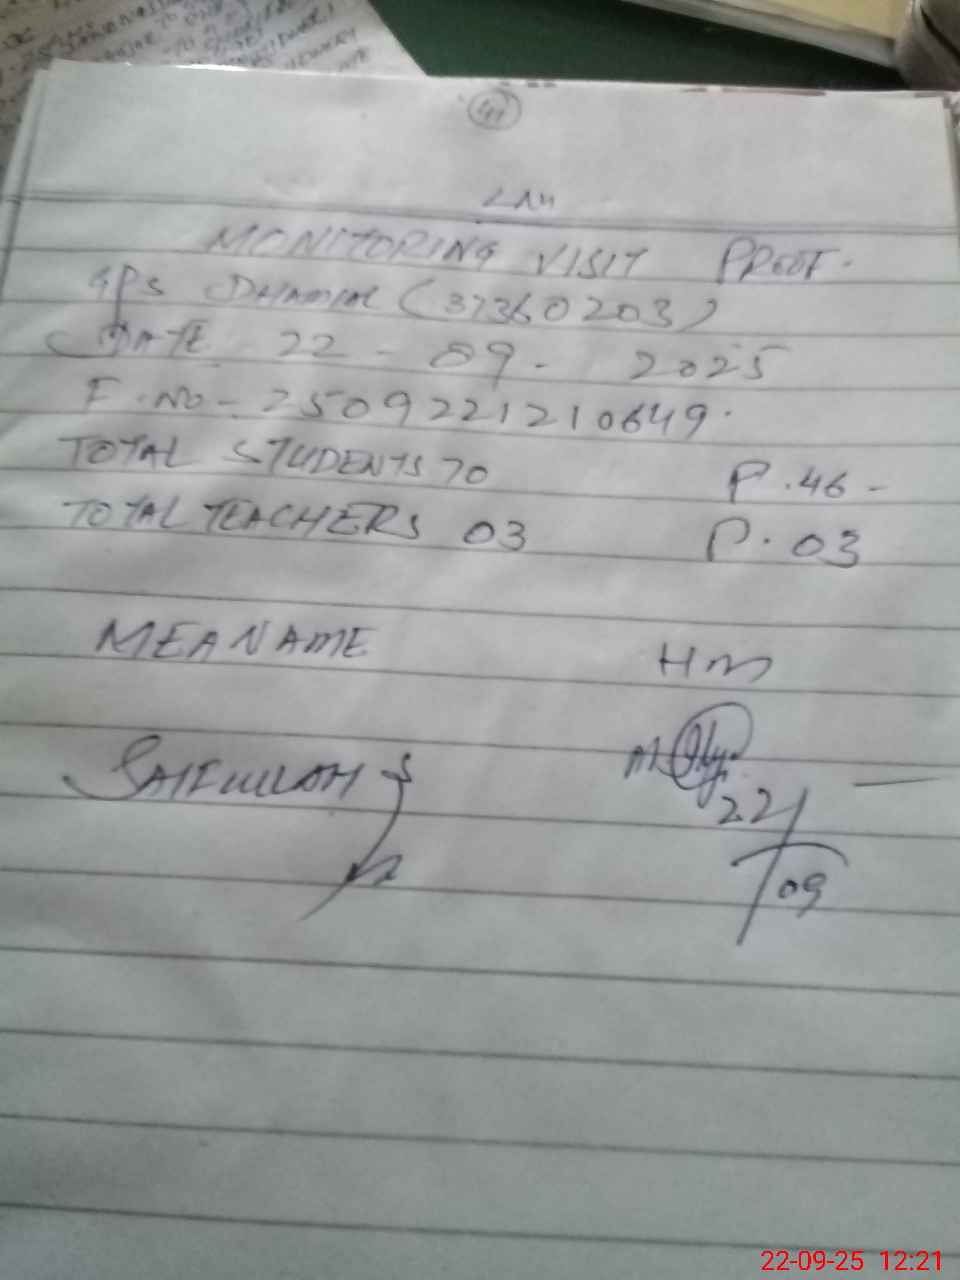 MONITORING VISIT PROOF.
GPS DHAMIAL (37360203)
DATE 22 - 09 - 2025
F. NO - 2509221210649.
TOTAL STUDENTS 70 P. 46 -
TOTAL TEACHERS 03 P. 03
MEA NAME HM
SAIFULLAH
22/09
22-09-25 12:21